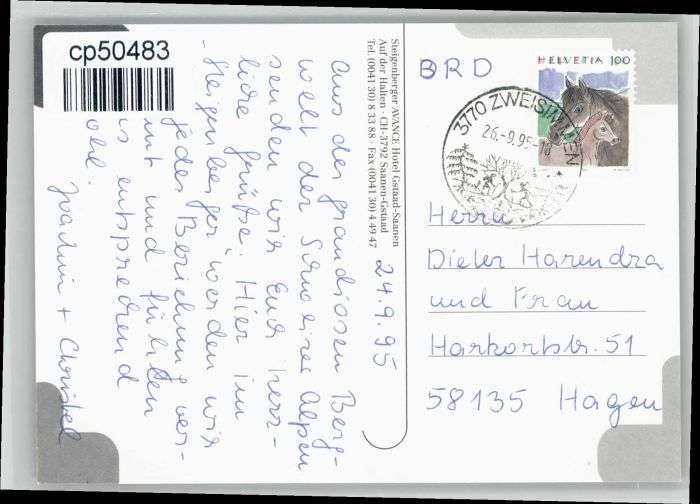 cp50483
24.9.95
Aus der grandiosen Berg-
welt der Schweizer Alpen
senden wir Euch herz-
liche Grüße. Hier im
Steigenberger werden wir
jeder Beziehung ver-
nt und fühlen
s entsprechend
ohl.
Joachim + Christel
Steigenberger AVANCE Hotel Gstaad-Saanen
Auf der Halten · CH-3792 Saanen-Gstaad
Tel. (0041 30) 8 33 88 · Fax (0041 30) 4 49 47
BRD
HELVETIA 100
3770 ZWEISIMMEN
26.-9.95-
Herrn
Dieter Harendza
und Frau
Harkortstr. 51
58135 Hagen